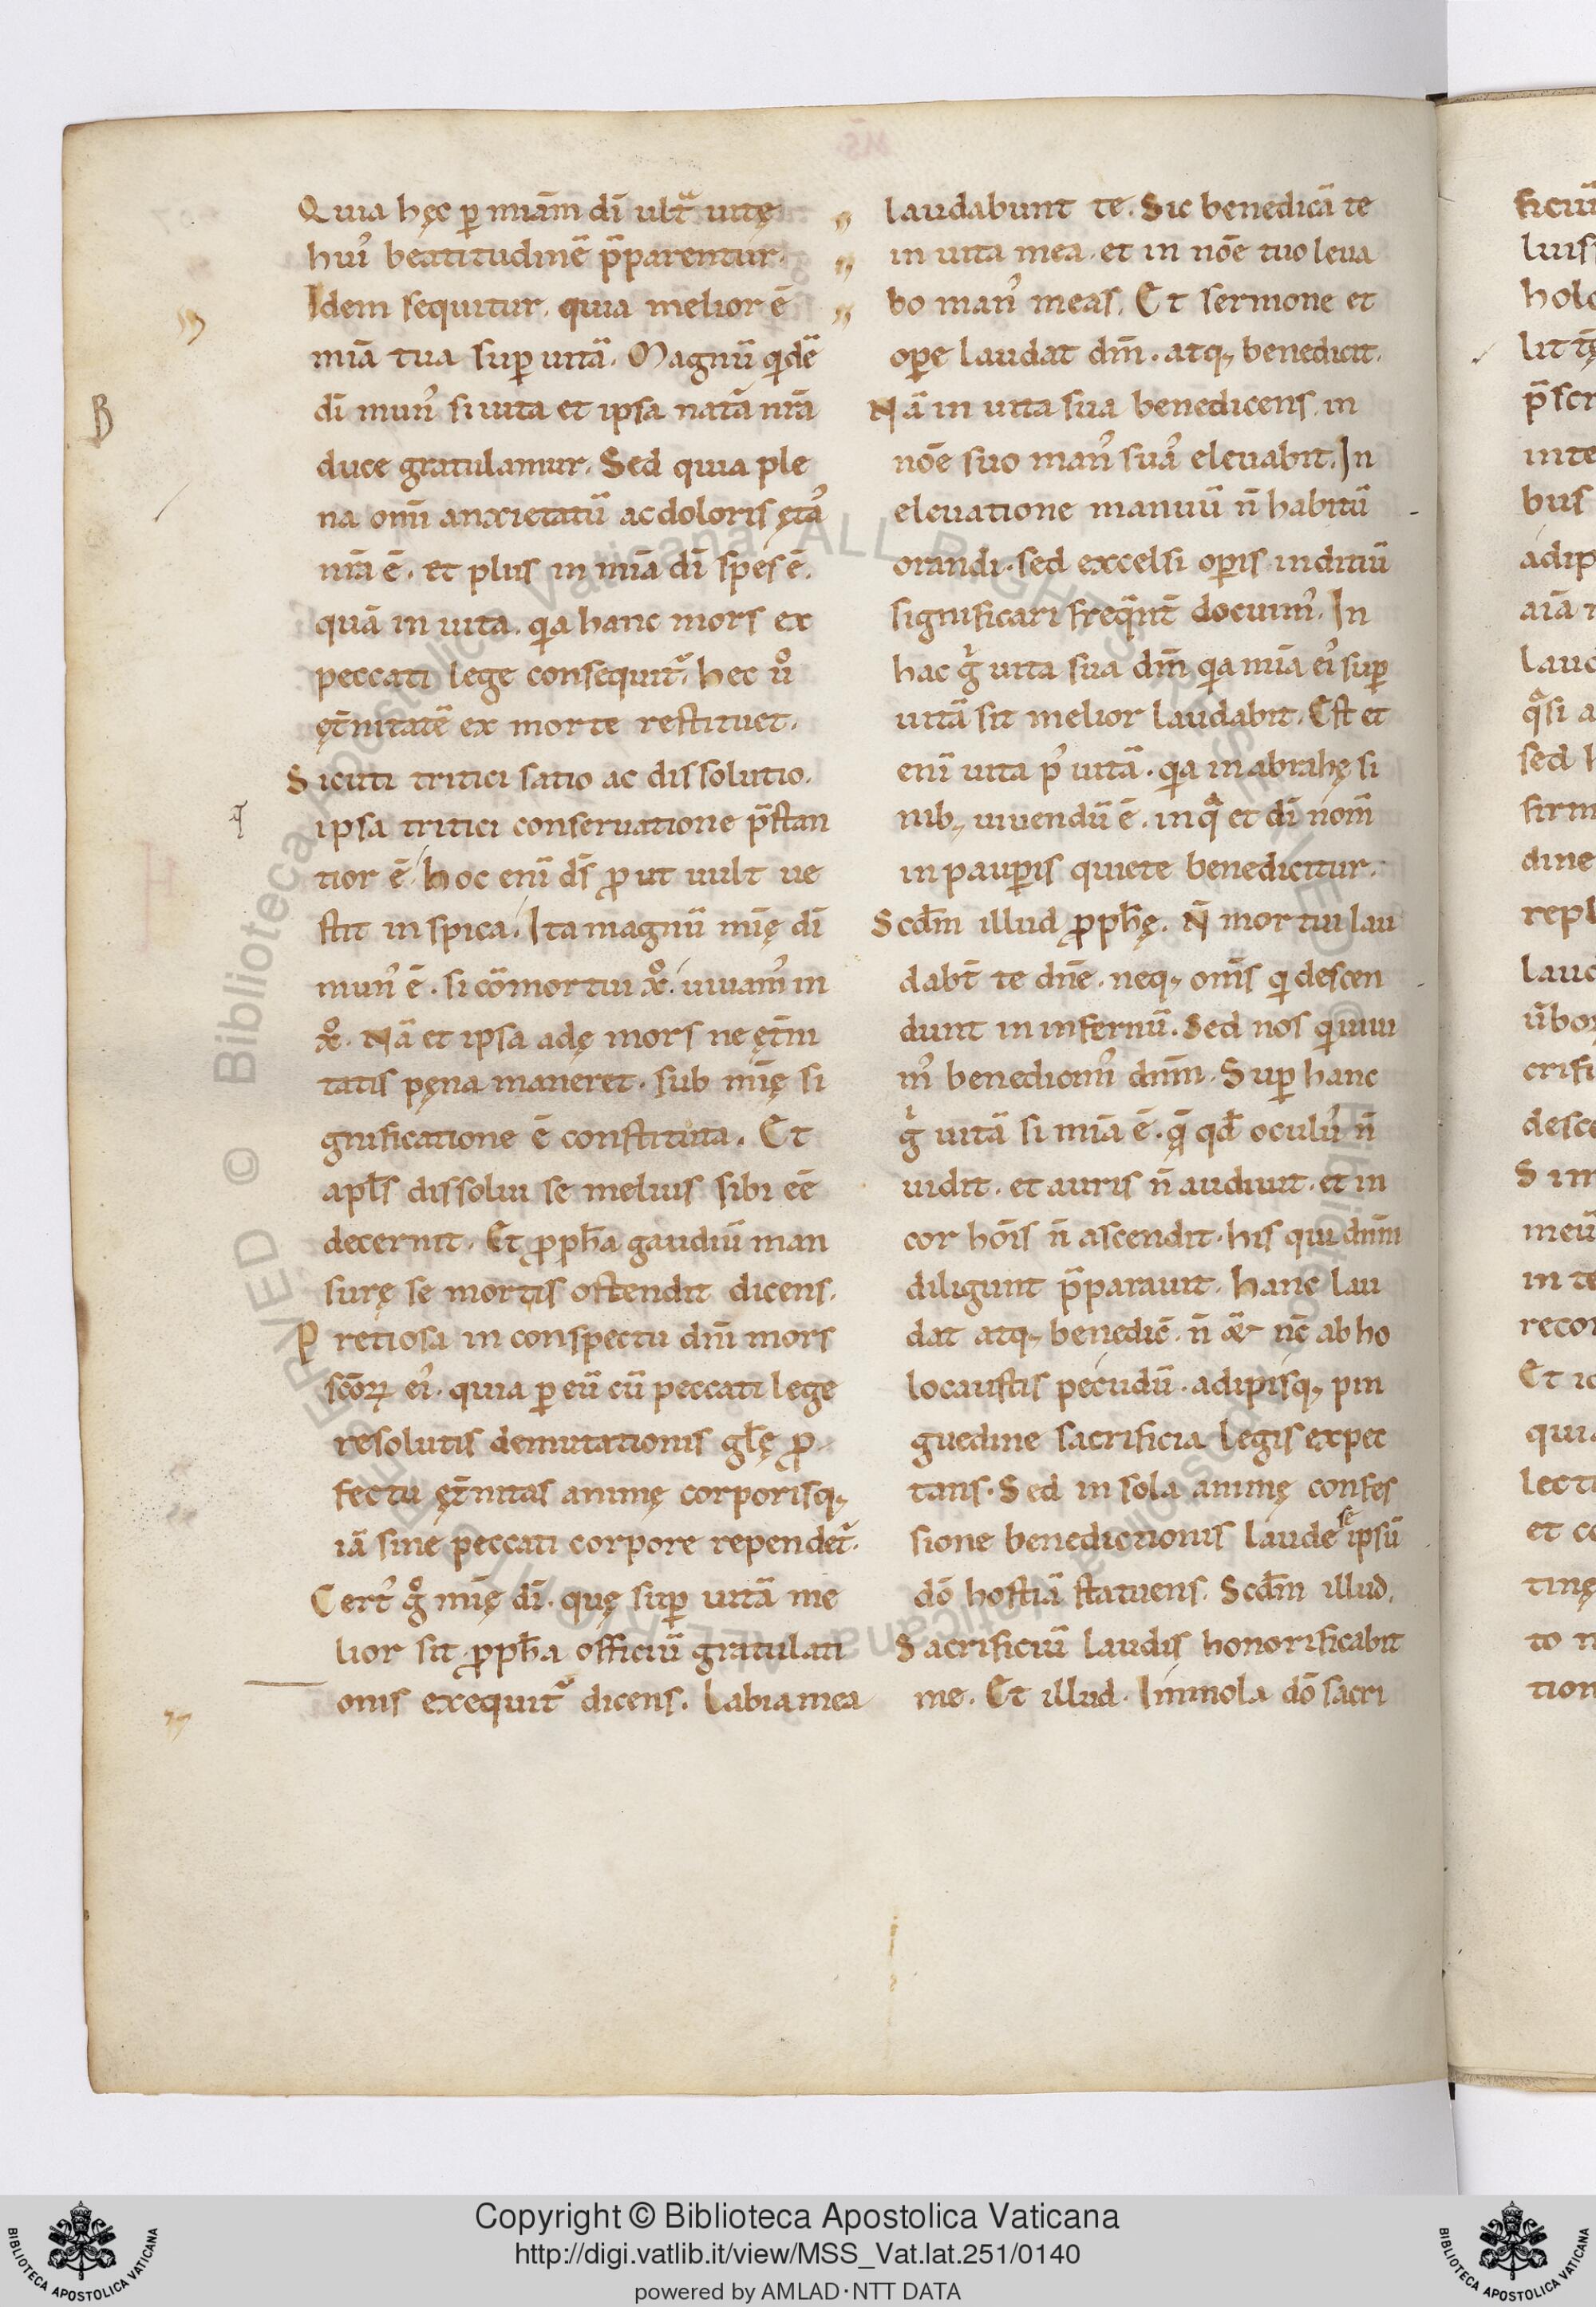 Quia hęc ꝑ miām dī ultᷓ uitę
hui᾽ beatitudinē p̄parentur.
Idem sequitur. quia melior ē
mīa tua suꝑ uitā. Magnū qͥdē
dī mun᾽ si uita et ipsa natā nr̄a
duce gratulamur. Sed quia ple
na om̄i anxietatū ac doloris ęta᾽
nr̄a ē. et plus in mīa dī spes ē.
quā in uita. qͥa hanc mors ex
peccati lege consequit᷑. hec ů
ęt̄nitatē ex morte restituet.
Sicuti tritici satio ac dissolutio.
ipsa tritici conseruatione p̄stan
tior ē. hoc eni ds̄ ꝓut uult ue
stit in spica. Ita magnū mīę dī
mun᾽ ē. si cōmortui xp̊. uiuam᾽ in
xp̊. Nā et ipsa adę mors ne ęt̄ni
tatis pęna maneret. sub mīę si
gnificatione ē constituta. Et
apl̄s dissolui se melius sibi eē
decernit. Et ꝓph̄a gaudiū man
surę se mortis ostendit dicens.
Pretiosa in conspectu dn̄i mors
sc̄oꝝ ei᾽. quia ꝑ eū cū peccati lege
resolutis demutationis gl̄ę ꝓ
fectu ęt̄nitas animę corporisq;
iā sine peccati corpore rependet᷑.
Cert᾽ g̊ mīę dī. quę suꝑ uitā me
lior sit ꝓph̄a officiū gratulati
onis exequit᷑ dicens. Labia mea
laudabunt te. Sic benedicā te
in uita mea. et in nōe tuo leua
bo man᾽ meas. Et sermone et
oꝑe laudat dm̄. atq; benedicit.
Nā in uita sua benedicens. in
nōe suo man᾽ sua᾽ eleuabit. In
eleuatione manuū n̄ habitū
orandi. sed excelsi oꝑis inditiū
significari freqn̄t docuim᾽. In
hac gͥ uita sua dm̄ qͥa mīa ei᾽ suꝑ
uitā sit melior laudabit. Est et
enī uita p᾽ uitā. qͥa in abrahę si
nib; uiuendū ē. in qͣ et dī nom̄
in pauꝑis quiete benedicitur.
Scd̄m illud ꝓph̄ę. N̄ mortui lau
dabt̄ te dn̄e. neq; om̄s qͥ descen
dunt in infernū. Sed nos qͥ uiui
m᾽ benedicim᾽ dn̄m. Suꝑ hanc
gͥ uitā si mīa ē. q̄ qd̄ oculu᾽ n̄
uidit. et auris n̄ audiuit. et in
cor hōis n̄ ascendit. his qui dn̄m
diligunt p̄parauit. hanc lau
dat atq; benedic̄. n̄ nc̄ ab ho
locaustis pecudū. adipisq; pin
guedine sacrificia legis expec
tans. Sed in sola animę confes
sione benedictionis laude se ipsū
dō hostiā statuens. Scd̄m illud.
Sacrificiū laudis honorificabit
me. Et illud. Immola dō sacri
Copyright © Biblioteca Apostolica Vaticana
http://digi.vatlib.it/view/MSS_Vat.lat.251/0140
powered by AMLAD·NTT DATA
BIBLIOTECA APOSTOLICA VATICANA
BIBLIOTECA APOSTOLICA VATICANA